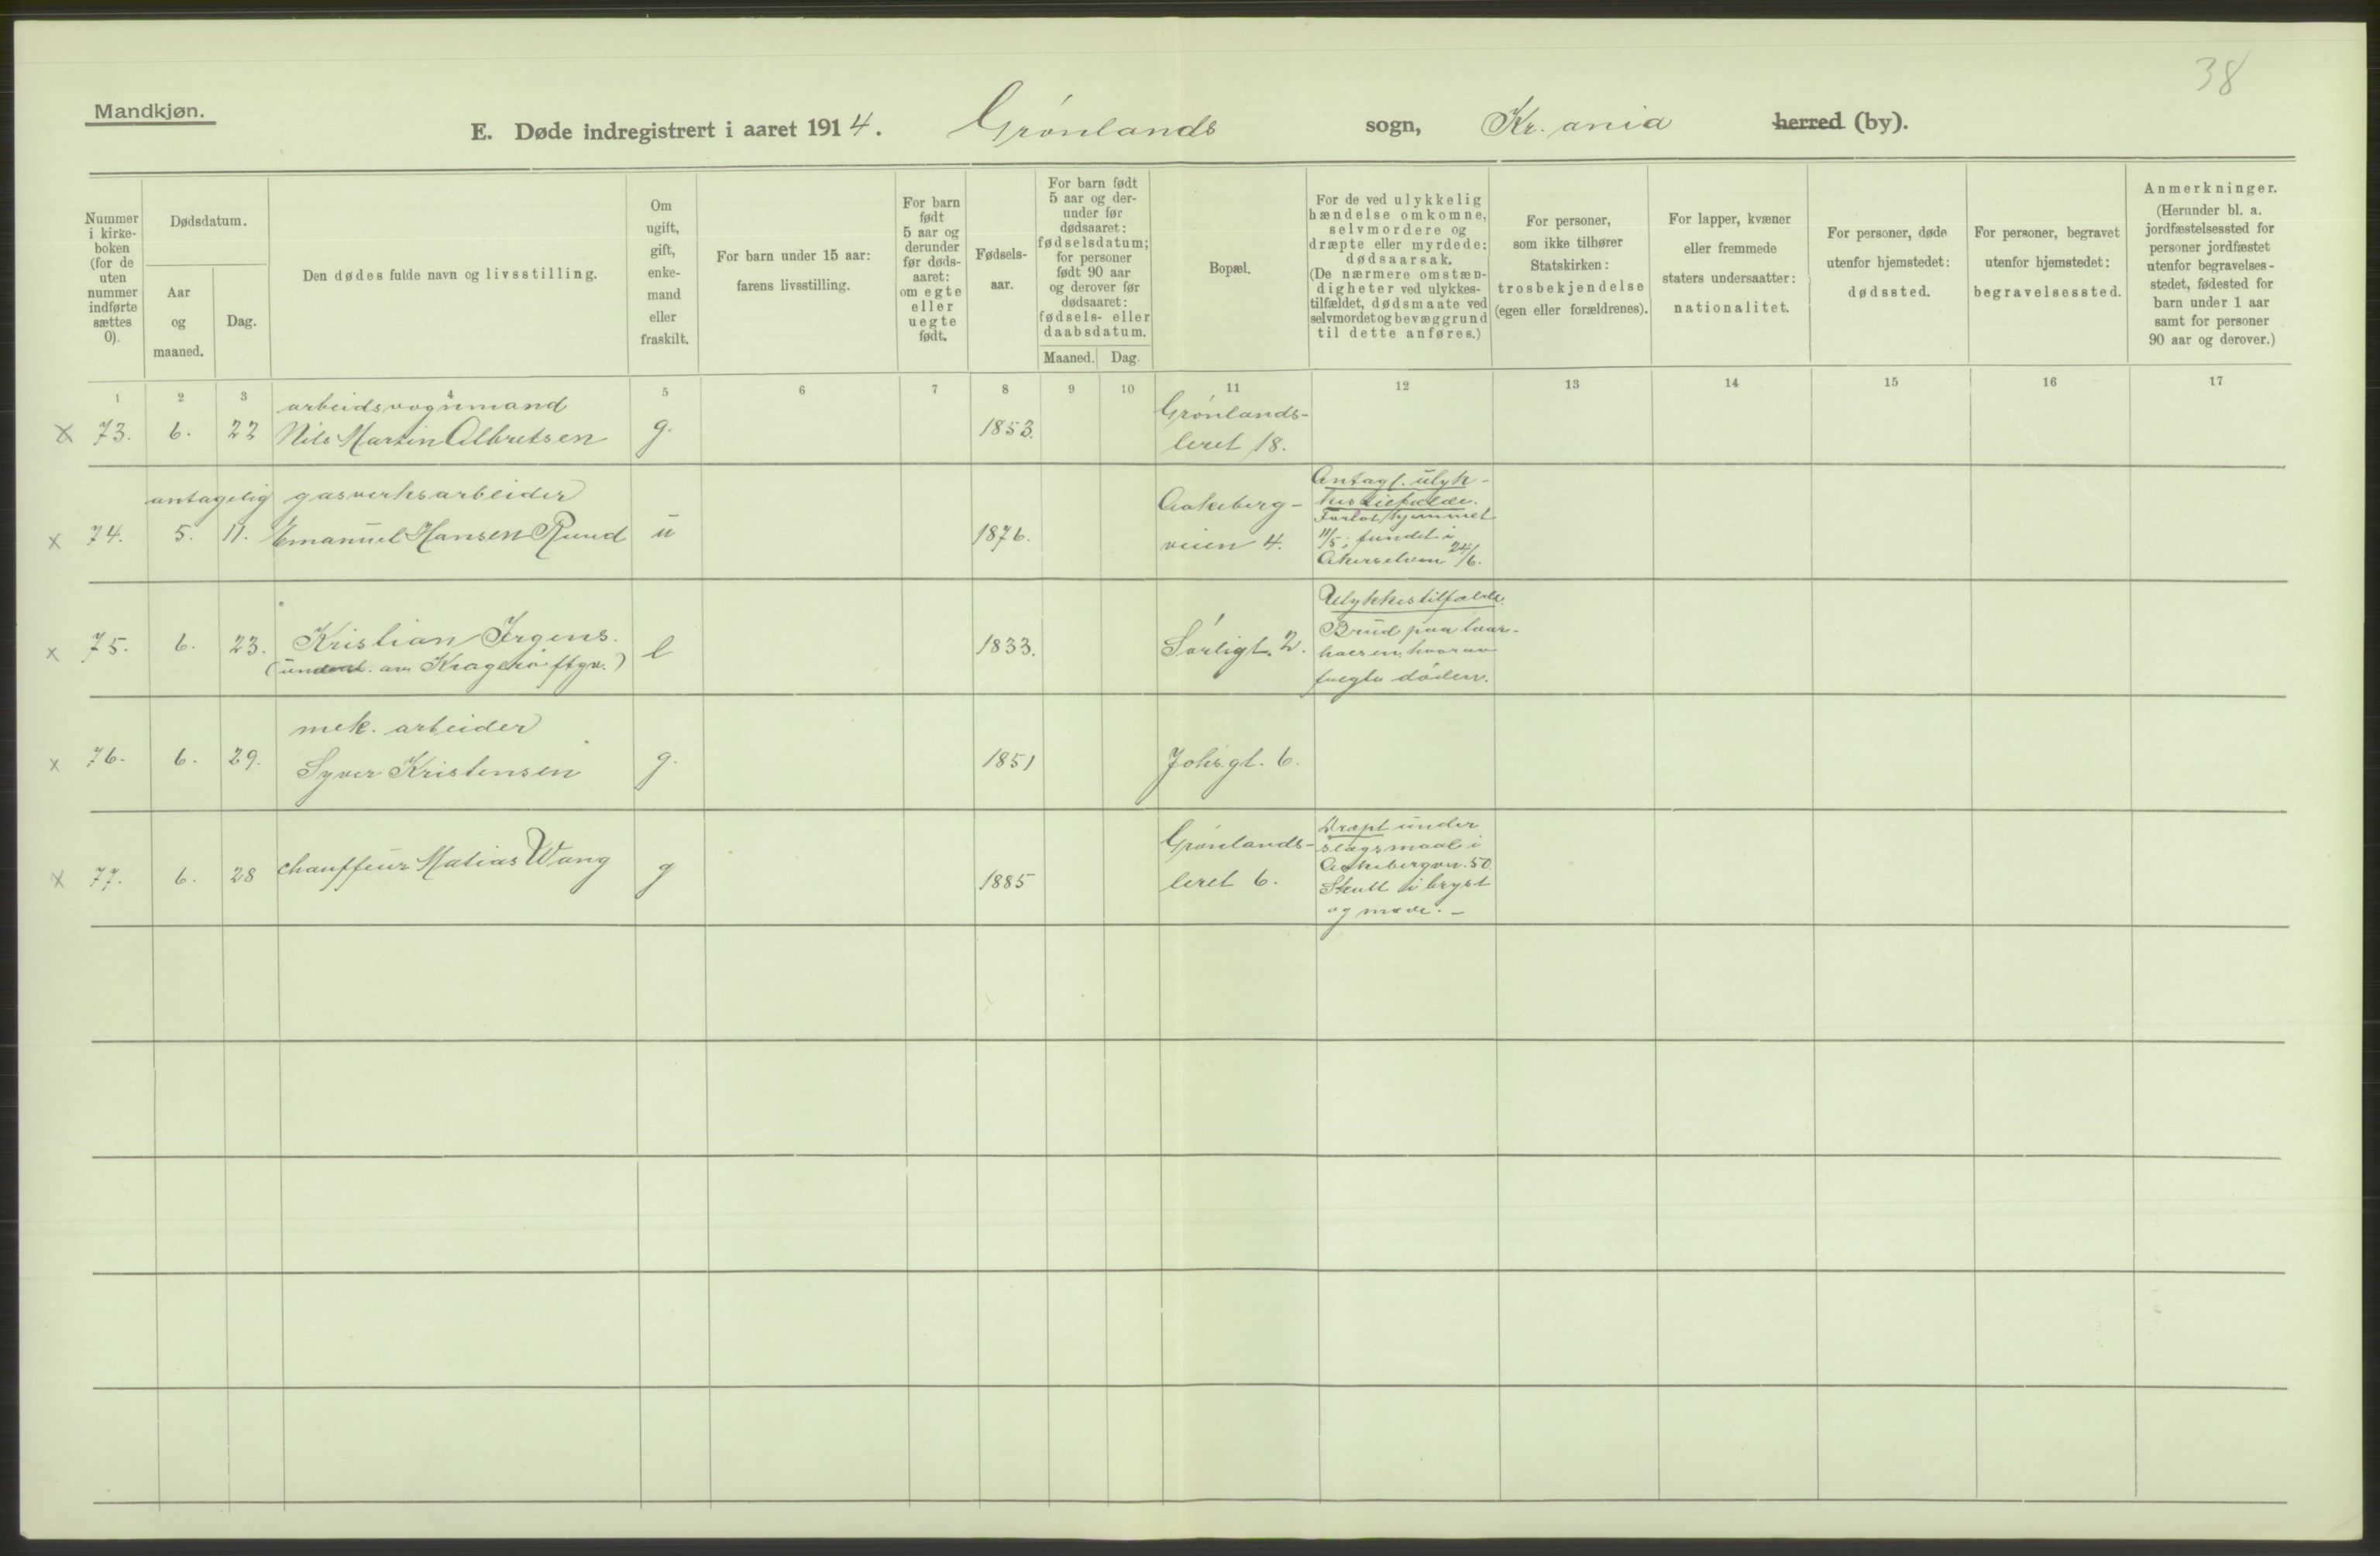 38
Mandkjøn.
E. Døde indregistrert i aaret 1914. Grønlands sogn, Kr.ania herred (by).
Nummer i kirke- boken (for de uten nummer indførte sættes 0).
Dødsdatum.
Aar og maaned.
Dag.
Den dødes fulde navn og livsstilling.
Om ugift, gift, enke- mand eller fraskilt.
For barn under 15 aar: farens livsstilling.
For barn født 5 aar og derunder før døds- aaret: om egte eller uegte født.
Fødsels- aar.
For barn født 5 aar og der- under før dødsaaret: fødselsdatum; for personer født 90 aar og derover før dødsaaret: fødsels- eller daabsdatum.
Maaned. Dag.
Bopæl.
For de ved ulykkelig hændelse omkomne, selvmordere og dræpte eller myrdede: dødsaarsak. (De nærmere omstæn- digheter ved ulykkes- tilfældet, dødsmaate ved selvmordet og bevæggrund til dette anføres.)
For personer, som ikke tilhører Statskirken: trosbekjendelse (egen eller forældrenes).
For lapper, kvæner eller fremmede staters undersaatter: nationalitet.
For personer, døde utenfor hjemstedet: dødssted.
For personer, begravet utenfor hjemstedet: begravelsessted.
Anmerkninger. (Herunder bl. a. jordfæstelsessted for personer jordfæstet utenfor begravelses- stedet, fødested for barn under 1 aar samt for personer 90 aar og derover.)
1 2 3 4 5 6 7 8 9 10 11 12 13 14 15 16 17
arbeidsvognmand Grønlands-
x 73. 6. 22 Nils Martin Albretsen g. 1853. leret 18.
antagelig gasverksarbeider
x 74. 5. 11. Emanuel Hansen Ruud u 1876. Aakeberg-
veien 4.
Antagl. ulyk-
kestilfælde.
Forlot hjemmet
11/5; fundet i
Akerselven 24/6.
x 75. 6. 23. Kristian Irgens. e 1833. Sørligt. 2.
(underst. av Kragerø ftgv.)
Ulykkestilfælde.
Brud paa laar-
halsen, hvorav
fulgte døden.
mek. arbeider
x 76. 6. 29. Syver Kristensen g. 1851 Johs.gt. 6.
x 77. 6. 28 chauffeur Matias Wang g 1885 Grønlands-
leret 6.
Dræpt under
slagsmaal i
Aakebergvn. 50.
Skutt i bryst
og mave. —